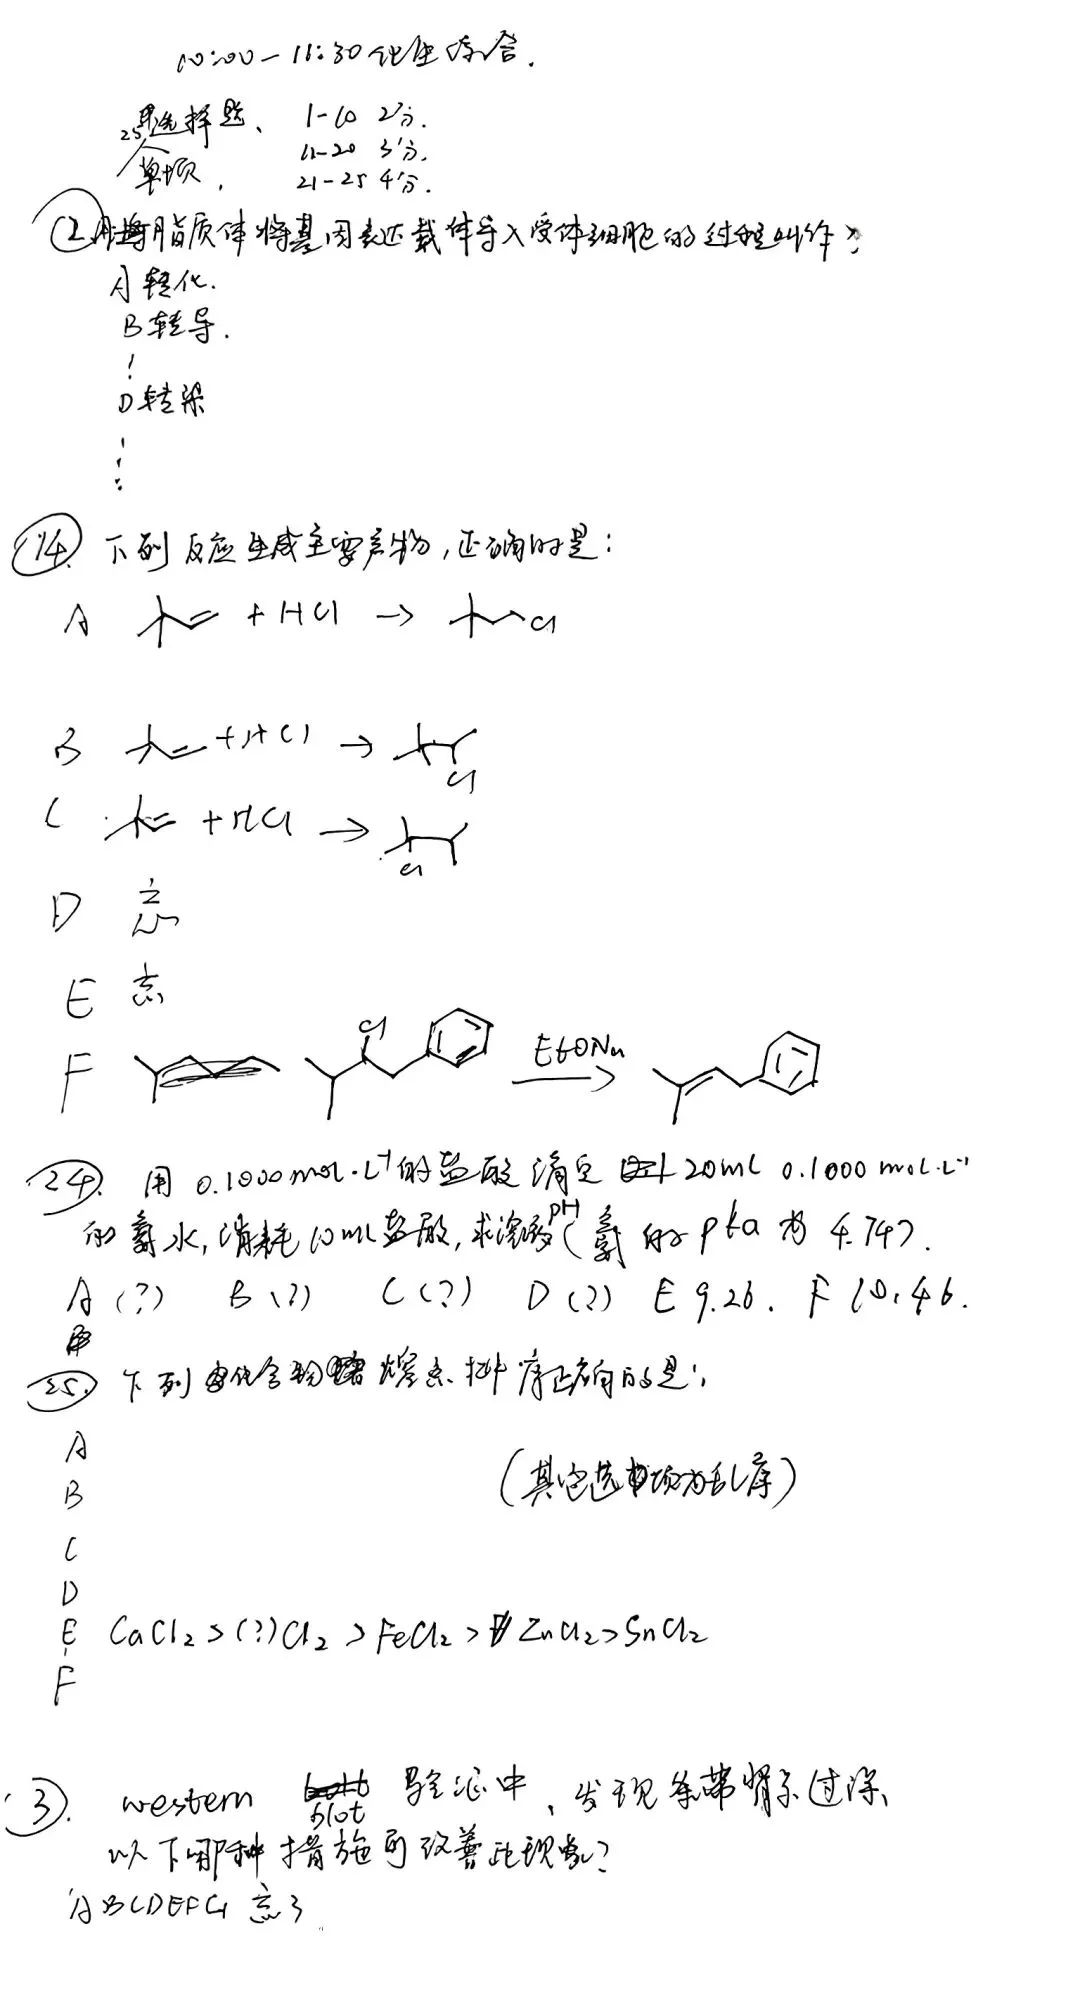 10:00-11:30 化生综合.
25个选择题、 1-10 2分.
单项, 11-20 3分.
21-25 4分.
② 用脂质体将基因表达载体导入受体细胞的过程叫作?
A 转化.
B 转导.
D 转染
14. 下列反应生成主要产物,正确的是:
A + HCl → Cl
B + HCl → Cl
C + HCl → Cl
D 忘
E 忘
F Cl EtONa
24. 用 0.1000 mol·L⁻¹ 的盐酸滴定 20ml 0.1000 mol·L⁻¹
的氨水,消耗10ml盐酸,求溶液pH(氨的pka为4.74).
A (?) B (?) C (?) D (?) E 9.26. F 10.46.
25. 下列化合物熔点排序正确的是:
A
(其它选项为乱序)
B
C
D
E CaCl₂ > (?)Cl₂ > FeCl₂ > ZnCl₂ > SnCl₂
F
3. western blot 验证中,发现条带背景过深、
以下哪种措施可改善此现象?
ABCDEFG 忘了